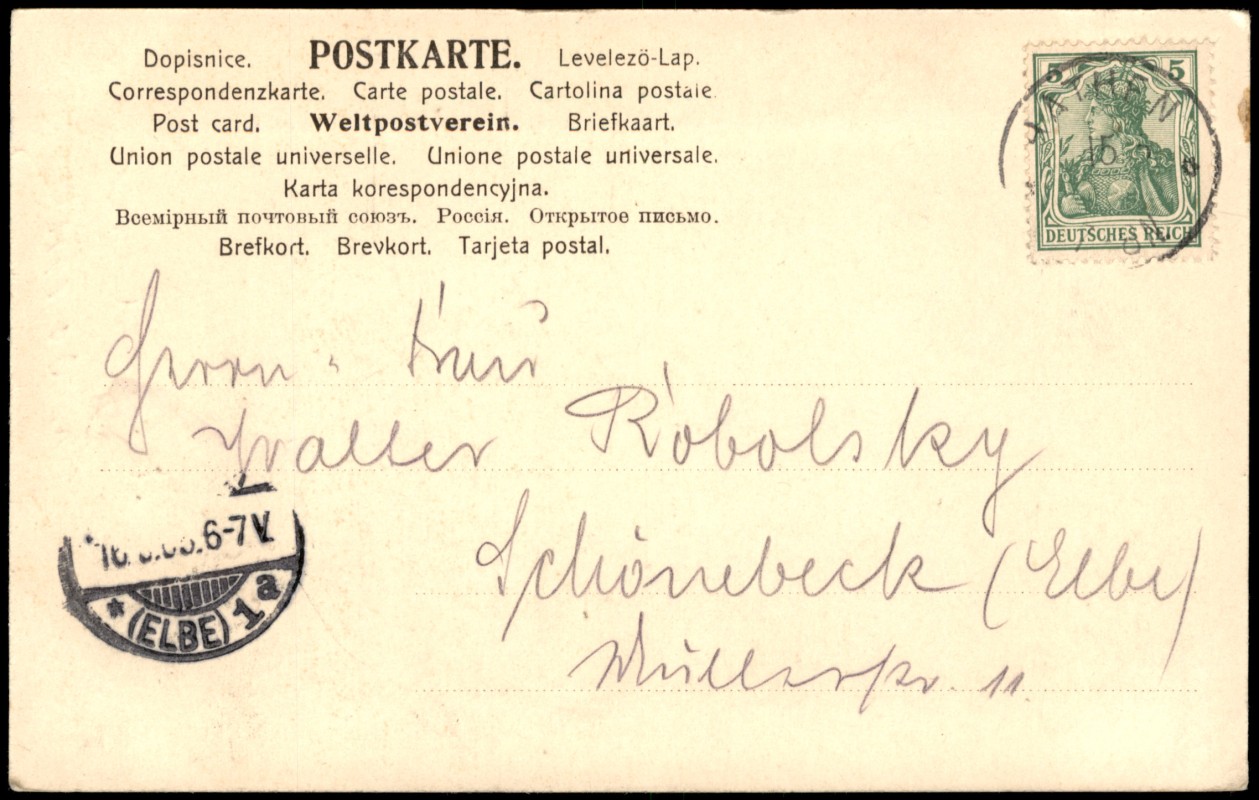 Dopisnice. POSTKARTE. Levelező-Lap.
Correspondenzkarte. Carte postale. Cartolina postale.
Post card. Weltpostverein. Briefkaart.
Union postale universelle. Unione postale universale.
Karta korespondencyjna.
Всемірный почтовый союзъ. Россія. Открытое письмо.
Brefkort. Brevkort. Tarjeta postal.
5 5
DEUTSCHES REICH
RATHEN
15
a
Herrn u. Frau
Walter Robolsky
Schönebeck (Elbe)
Müllerstr. 11
6-7V.
* (ELBE) 1a